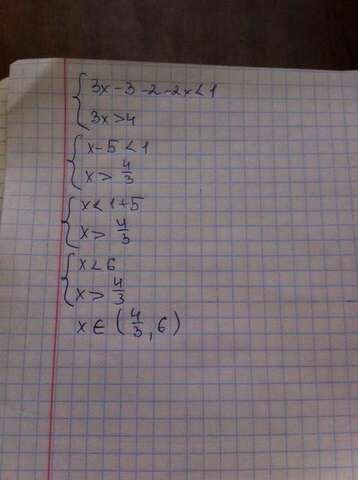 { 3x - 3 - 2 - 2x < 1
3x > 4
{ x - 5 < 1
x > 4/3
{ x < 1 + 5
x > 4/3
{ x < 6
x > 4/3
x ∈ (4/3, 6)